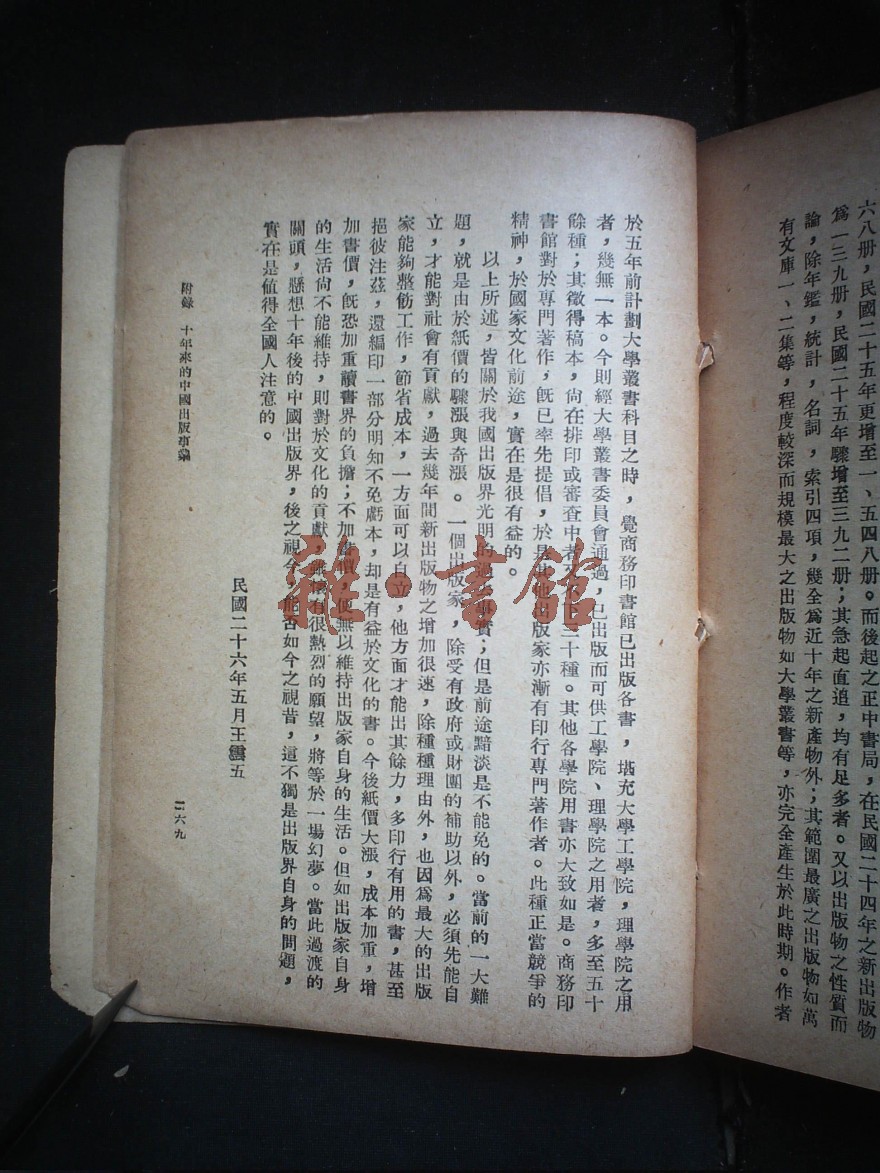 六八册，民國二十五年更增至一、五四八册。而後起之正中書局，在民國二十四年之新出版物
爲一三九册，民國二十五年驟增至三九二册；其急起直追，均有足多者。又以出版物之性質而
論，除年鑑，統計，名詞，索引四項，幾全爲近十年之新產物外；其範圍最廣之出版物如萬
有文庫一、二集等，程度較深而規模最大之出版物如大學叢書等，亦完全產生於此時期。作者
於五年前計劃大學叢書科目之時，覺商務印書館已出版各書，堪充大學工學院，理學院之用
者，幾無一本。今則經大學叢書委員會通過，已出版而可供工學院、理學院之用者，多至五十
餘種；其徵得稿本，尚在排印或審查中者三十種。其他各學院用書亦大致如是。商務印
書館對於專門著作，旣已率先提倡，於是其他出版家亦漸有印行專門著作者。此種正當競爭的
精神，於國家文化前途，實在是很有益的。
以上所述，皆關於我國出版界光明的過去事實；但是前途黯淡是不能免的。當前的一大難
題，就是由於紙價的驟漲與奇漲。一個出版家，除受有政府或財團的補助以外，必須先能自
立，才能對社會有貢獻，過去幾年間新出版物之增加很速，除種種理由外，也因爲最大的出版
家能夠整飭工作，節省成本，一方面可以自立，他方面才能出其餘力，多印行有用的書，甚至
挹彼注茲，還編印一部分明知不免虧本，却是有益於文化的書。今後紙價大漲，成本加重，增
加書價，旣恐加重讀書界的負擔；不加書價，便無以維持出版家自身的生活。但如出版家自身
的生活尚不能維持，則對於文化的貢獻，雖懷有很熱烈的願望，將等於一場幻夢。當此過渡的
關頭，懸想十年後的中國出版界，後之視今，能否如今之視昔，這不獨是出版界自身的問題，
實在是値得全國人注意的。
民國二十六年五月王雲五
附錄 十年來的中國出版事業
二六九
雜·書館